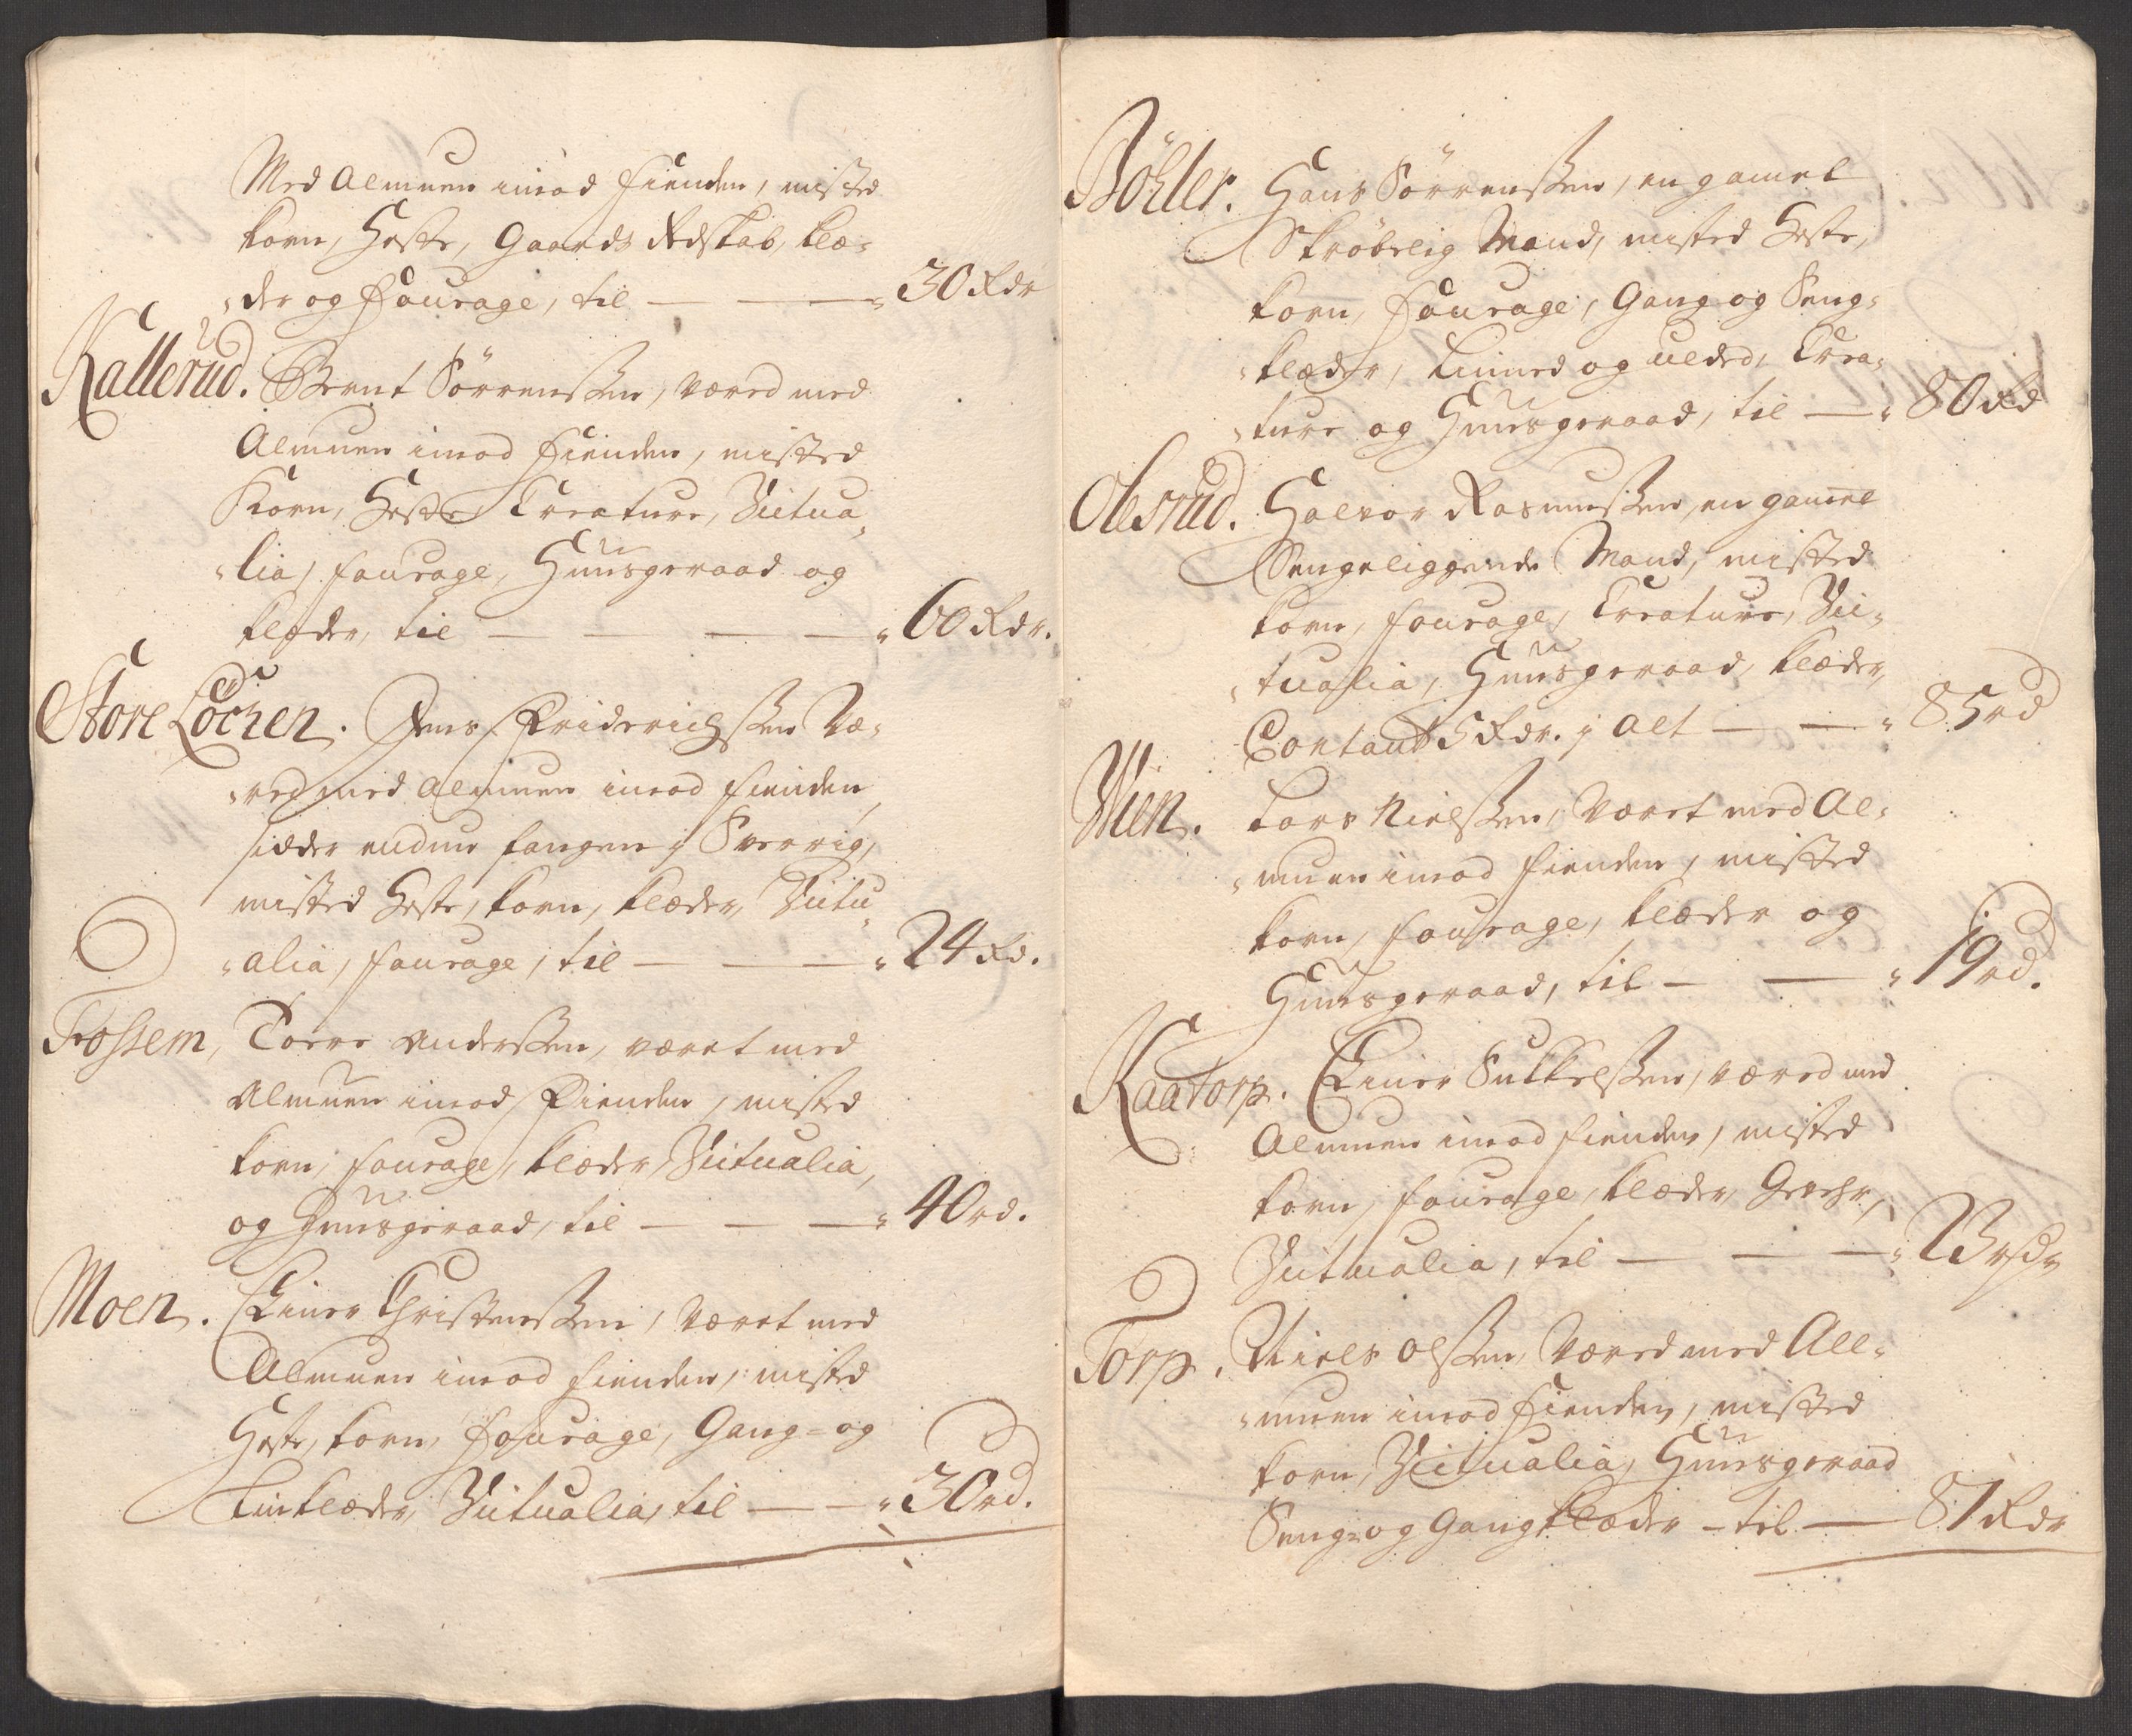 Med Almuen imod Fienden, misted
korn, Heste, Gaards Redskab, klæ-
der og Fourage, til — — — 30 Rdr
Kallerud. Bernt Sörrenssen, Væred med
Almuen imod Fienden, misted
Korn, Heste Creature, Victua-
lia, fourage, Huusgeraad og
klæder, til — — — — 60 Rdr.
Store Löchen. Jens Friderichssen Væ-
red med Almuen imod fienden,
sidder endnu fangen i Sverrig,
misted Heste, korn, klæder, Victu-
alia, fourage, til — — — 24 Rd.
Fossem, Torre Anderssen, været med
Almuen imod Fienden, misted
korn, fourage, klæder, Victualia,
og Huusgeraad, til — — — 40 rd.
Moen. Einer Christenssen, Været med
Almuen imod fienden, misted
Heste, korn, Fourage, Gang- og
Linklæder, Victualia, til — — 30 rd.
Böhler. Hans Sörrenssen, en gamel
Skröbelig Mand, misted Heste,
korn, Fourage, Gang og Seng-
klæder, Linned og ulded, Crea-
ture og Huusgeraad, til — 80 Rd
Olesrud. Halvor Rasmussen, en gammel
Sengeliggende Mand, misted
korn, fourage, Creature, Vic-
tualia, Huusgeraad, klæder,
Contant 5 Rdr. i alt — — 85 rd
Wien. Lars Nielssen, Været med Al-
muen imod fienden, misted
korn, fourage, klæder og
Huusgeraad, til — — 19 rd.
Kaatorp. Einer Sukkelssen, væred med
Almuen imod fienden, misted
korn, fourage, klæder, Gevehr,
Victualia, til — — — 23 rdr
Torp. Niels Olssen, Væred med All-
muen imod Fienden, misted
korn, Victualia, Huusgeraad
Seng- og Gangklæder – til — 81 Rdr